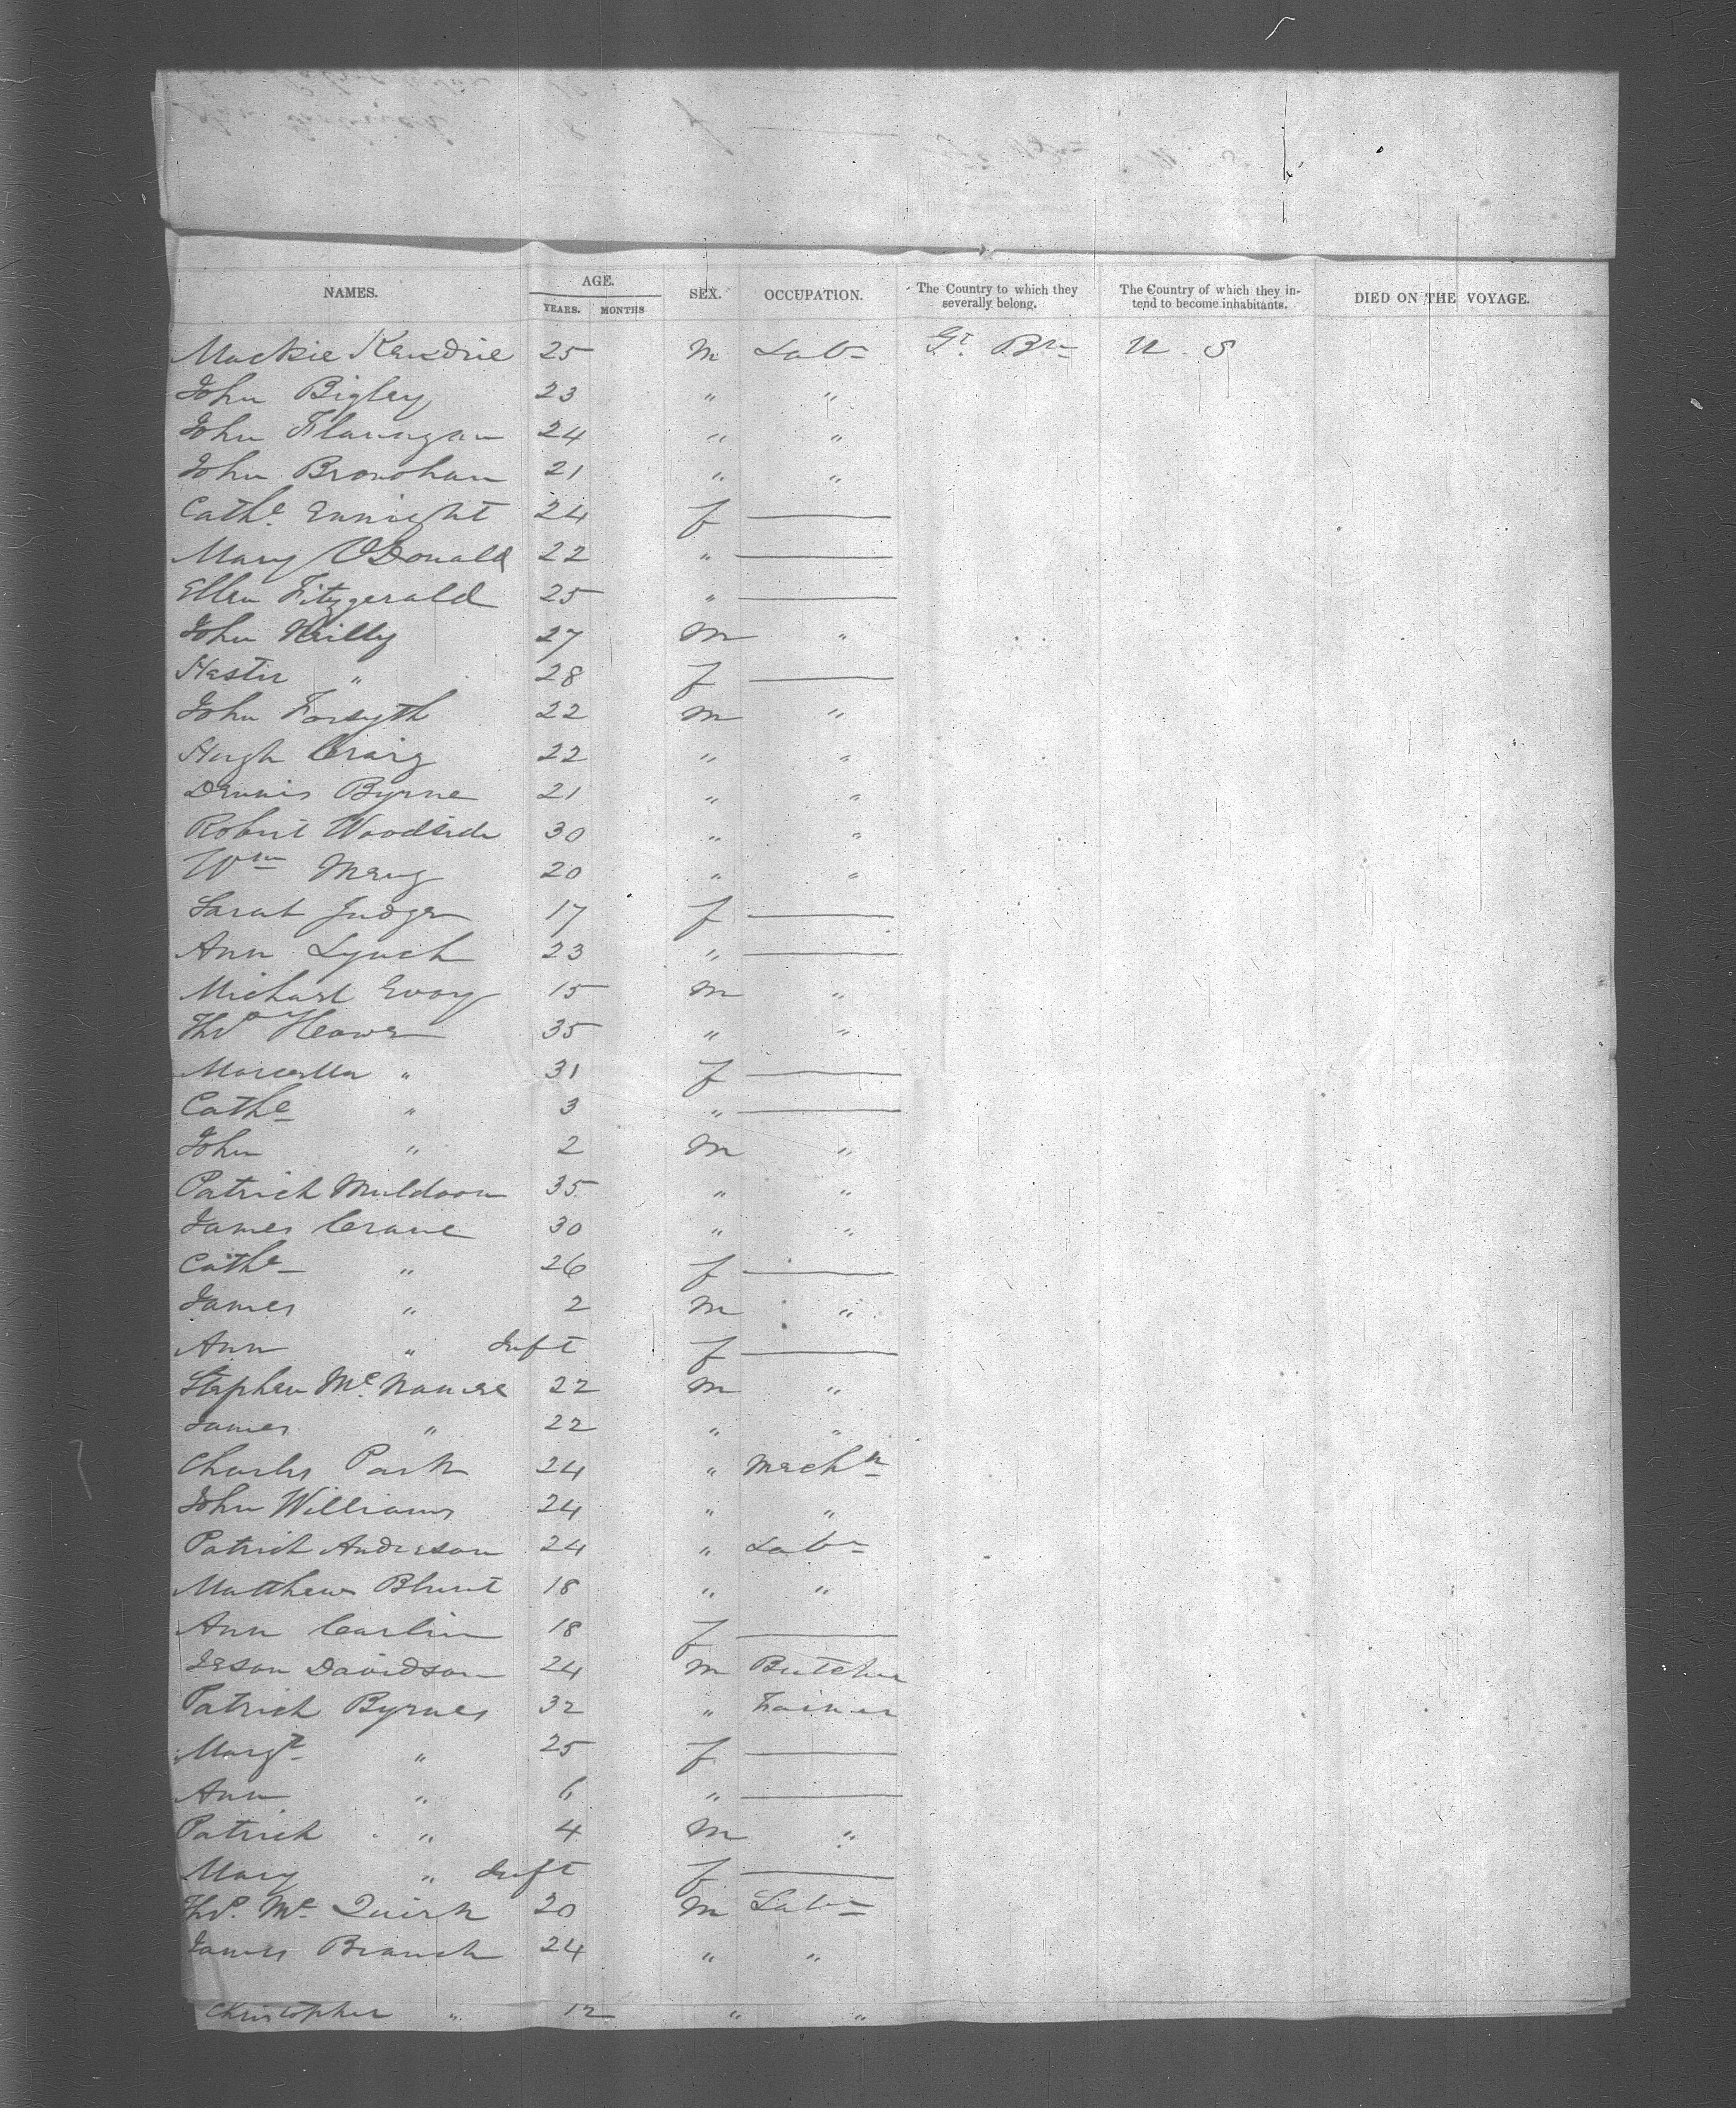 NAMES. AGE. SEX. OCCUPATION. The Country to which they severally belong. The Country of which they in-tend to become inhabitants. DIED ON THE VOYAGE.
YEARS. MONTHS
Mackie Kendrie 25 m Labr Gt. Brn U. S
John Bigley 23 " "
John Flannagan 24 " "
John Bronohan 21 " "
Cathe. Enright 24 f
Mary O'Donald 22 "
Ellen Fitzgerald 25 "
John Reilly 27 m "
Hester " 28 f
John Forsyth 22 m "
Hugh Craig 22 " "
Dennis Byrne 21 " "
Robert Woodside 30 " "
Wm 20 " "
Sarah Judge 17 f
Ann Lynch 23 "
Michael Evoy 15 m "
Thos 35 " "
Marcella " 31 f
Cathe " 3 "
John " 2 m "
Patrick Muldoon 35 " "
James Crane 30 " "
Cathe " 26 f
James " 2 m "
Ann " Inft f
Stephen Mc. Namee 22 m "
James " 22 " "
Charles Park 24 " Mechn
John Williams 24 " "
Patrick Anderson 24 " Labr
Matthew Blunt 18 " "
Ann Carlin 18 f
Davidson 24 m Butcher
Patrick Byrnes 32 " Farmer
Margt " 25 f
Ann " 6 "
Patrick " 4 m "
Mary " Inft f
Thos. Mc Quirk 20 m Labr
James Branch 24 " "
Christopher " 12 " "